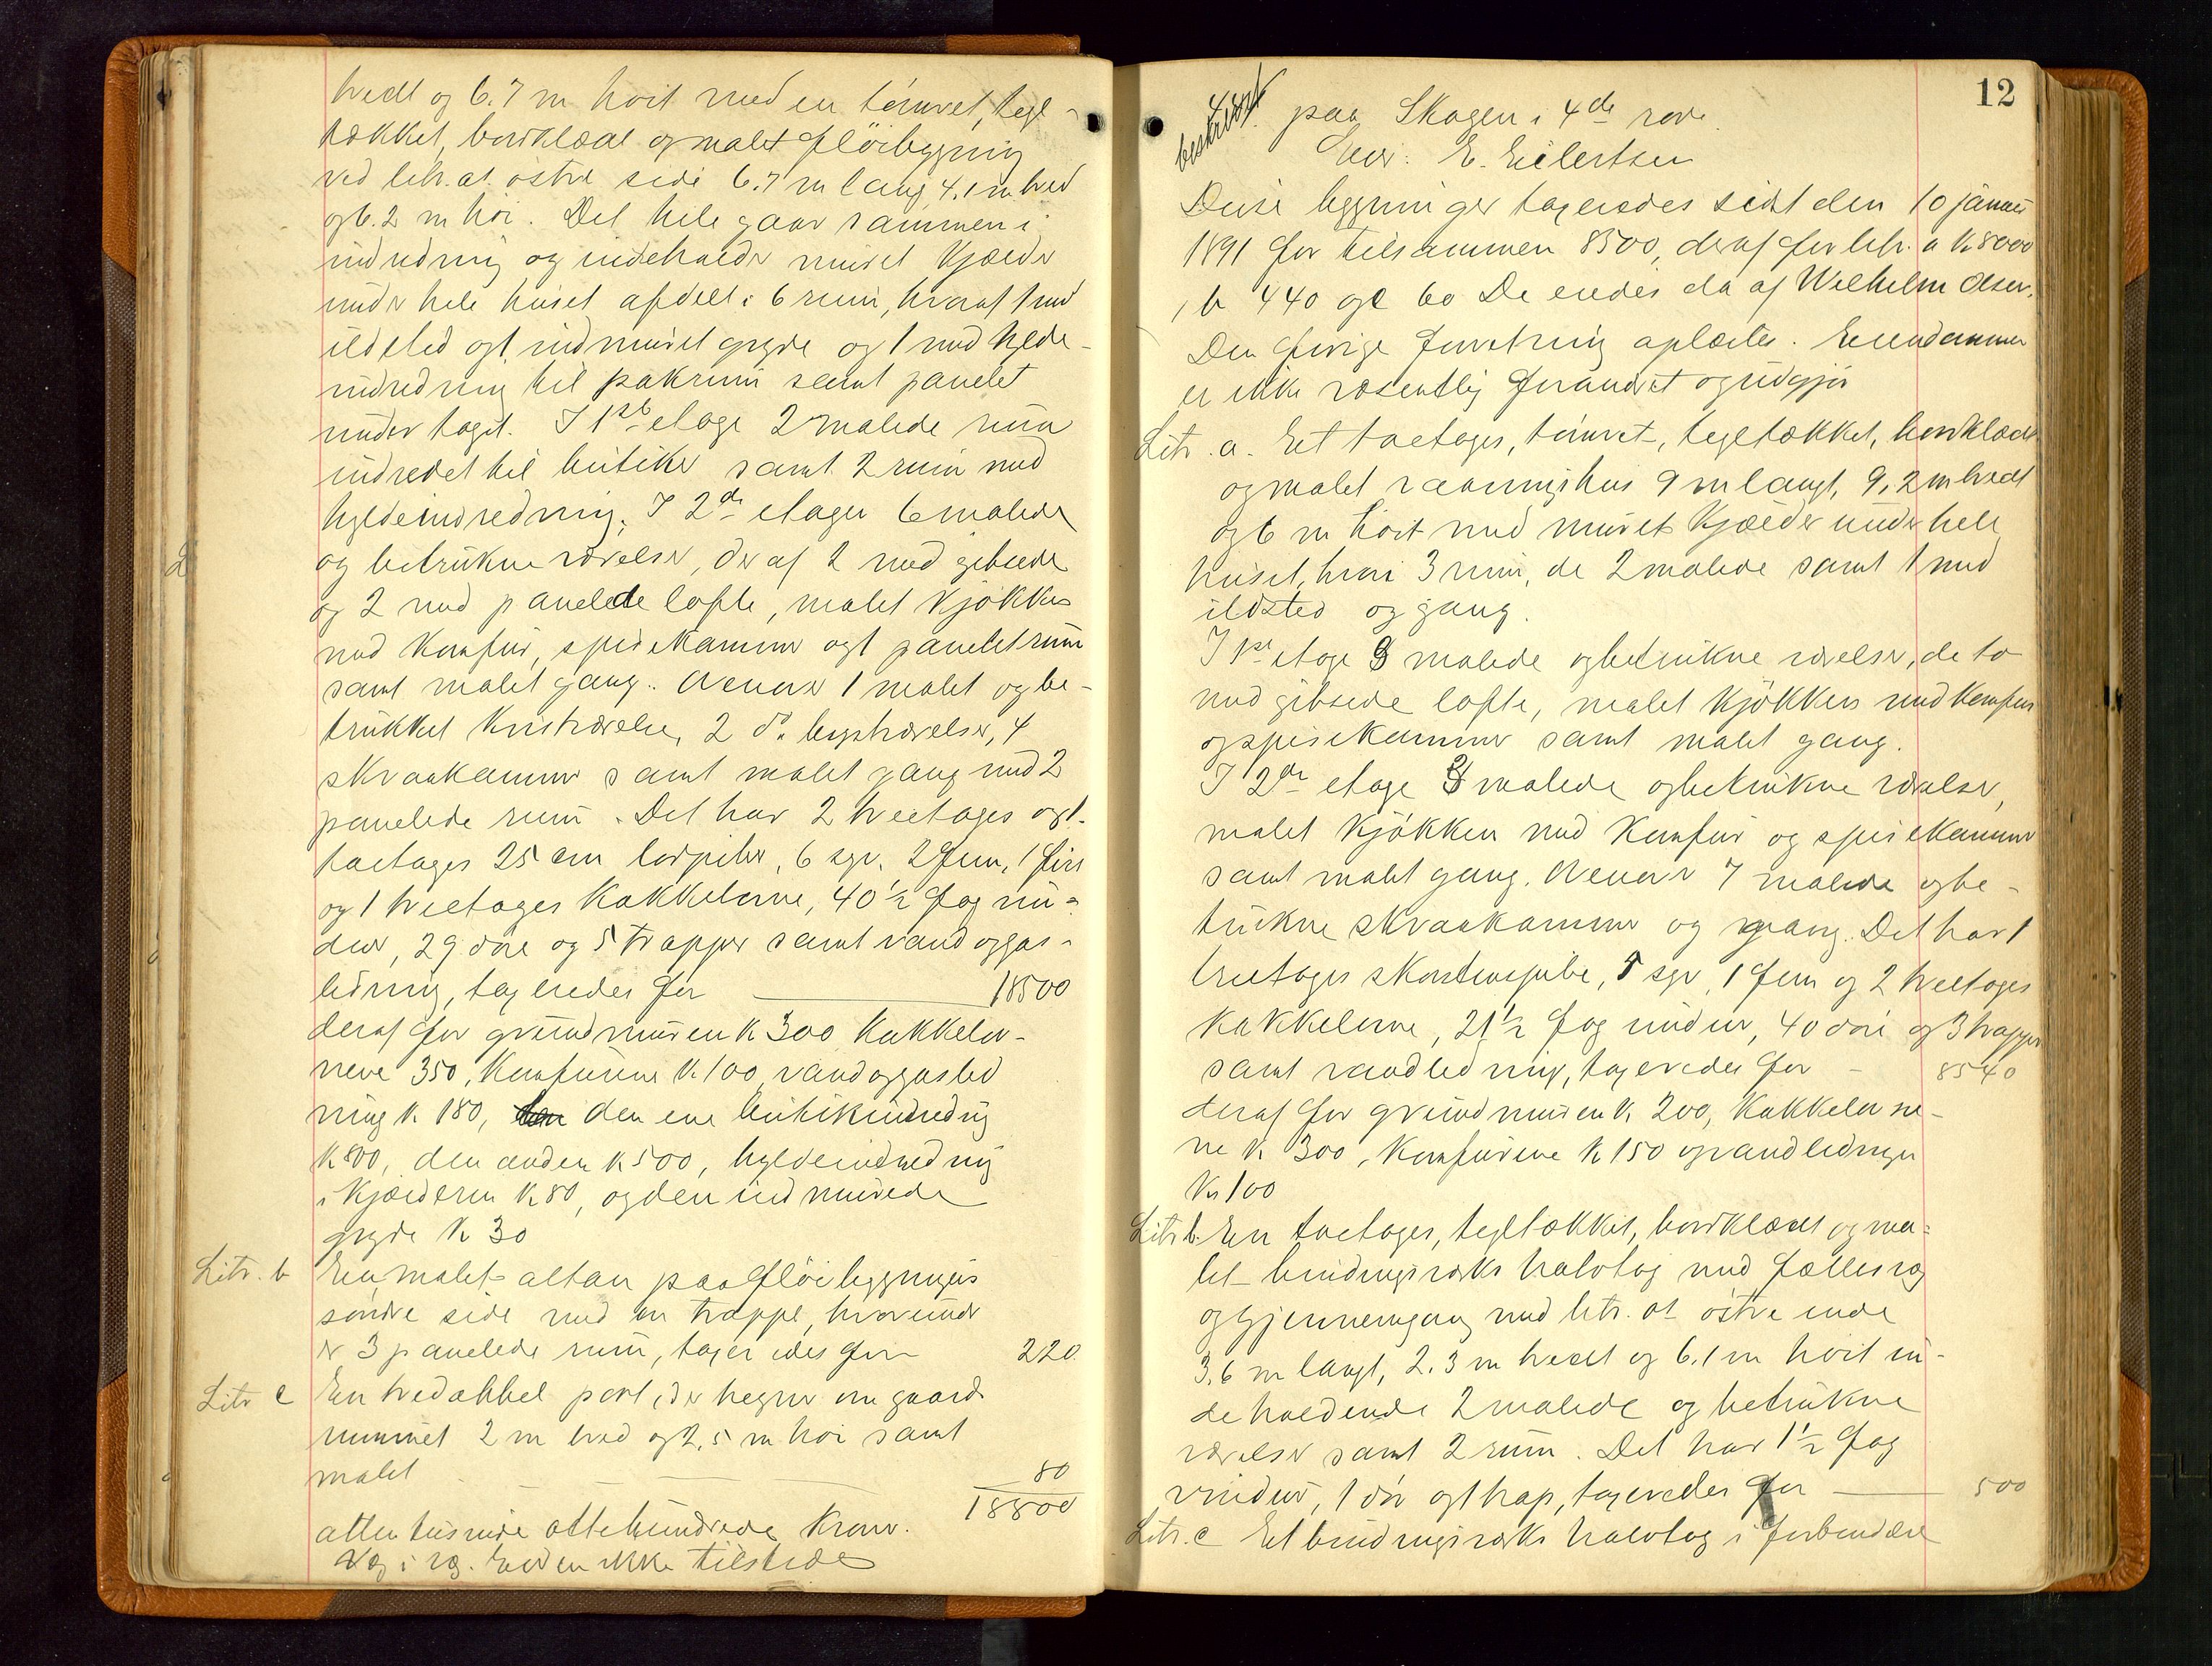 bredt og 6.7 m høit med en tømret, tegl-
tækket, bordklædt og malet fløibygning
ved litr. a's østre side 6.7 m lang, 4.1 m bred
og 6.2 m høi. Det hele gaar sammen i
indredning og indeholder muret Kjælder
under hele huset afdelt i 6 rum, hvoraf 1 med
ildsted og 1 indmuret gryde og 1 med hylde-
indredning til pakrum samt panelet
under taget. I 1ste etage 2 malede rum
indredet til butiker samt 2 rum med
hyldeindredning. I 2den etage 6 malede
og betrukne værelser, deraf 2 med gibsede
og 2 med panelede lofte, malet Kjøkken
med Komfur, spisekammer og 1 panelet rum
samt malet gang. Ovenover 1 malet og be-
trukket Kvistværelse, 2 do. værelser, 4
skraakammer samt malet gang med 2
panelede rum. Det har 2 treetages og 1
toetages 25 cm luftpiber, 6 sgr. 2 fem, 1 fire
og 1 treetages Kakkelovne, 40 1/2 fag vin-
duer, 29 døre og 5 trapper samt vand og gas-
ledning, taxeredes for 18500
deraf for grundmuren K 300 Kakkelov-
nene 350, Komfurene K. 100, vand og gasled
ning K 180, den ene butikindredning
K 800, den anden K 500, hyldeindredning
i Kjælderen K 80, og den indmurede
gryde K 30
Litr. b En malet altan paa fløibygningens
søndre side med en trappe, hvorunder
er 3 panelede rum, taxeredes for 220.
Litr c En tredobbel port, der hegner om gaards
rummet 2 m bred og 2,5 m høi samt
malet 80
18800
atten tusinde ottehundrede Kroner.
Væg i væg. Eieren ikke tilstede
12
44 beskrevet. paa Skagen i 4de rode.
Eier: E. Eilertsen
Disse bygninger taxeredes sidst den 10 januar
1891 for tilsammen 8500, deraf for litr. a K 8000
, b 440 og c 60 De eiedes da af Wilhelm Olsen.
Den forrige forretning oplæstes. Eiendommen
er ikke væsentlig forandret og udgjør
Litr. a. Et toetages, tømret, tegltækket, bordklædt
og malet vaaningshus 9 m langt, 9,2 m bredt
og 6 m høit med muret Kjælder under hele
huset, hvori 3 rum, de 2 malede samt 1 med
ildsted og gang.
I 1ste etage 3 malede og betrukne værelser, de to
med gibsede lofte, malet Kjøkken med Komfur
og spisekammer samt malet gang.
I 2den etage 3 malede og betrukne værelser,
malet Kjøkken med Komfur og spisekammer
samt malet gang. Ovenover 7 malede og be-
trukne skraakammer og gang. Det har 1
treetages skorstenspibe, 5 sgr, 1 fem og 2 treetages
Kakkelovne, 21 1/2 fag vinduer, 40 døre og 3 trapper
samt vandledning, taxeredes for - 8540
deraf for grundmuren K. 200, Kakkelovne-
ne K 300, Komfurene K 150 og vandledningen
Kr 100
Litr b. En toetages, tegltækket, bordklædt og ma-
let bindingsværks halvtag med fælles væg
og gjennemgang med litr. a's østre ende
3.6 m langt, 2.3 m bredt og 6.1 m høit in-
deholdende 2 malede og betrukne
værelser samt 2 rum. Det har 1 1/2 fag
vinduer, 1 dør og 1 trap, taxeredes for 500
Litr. c Et bindingsværks halvtag i forbindelse